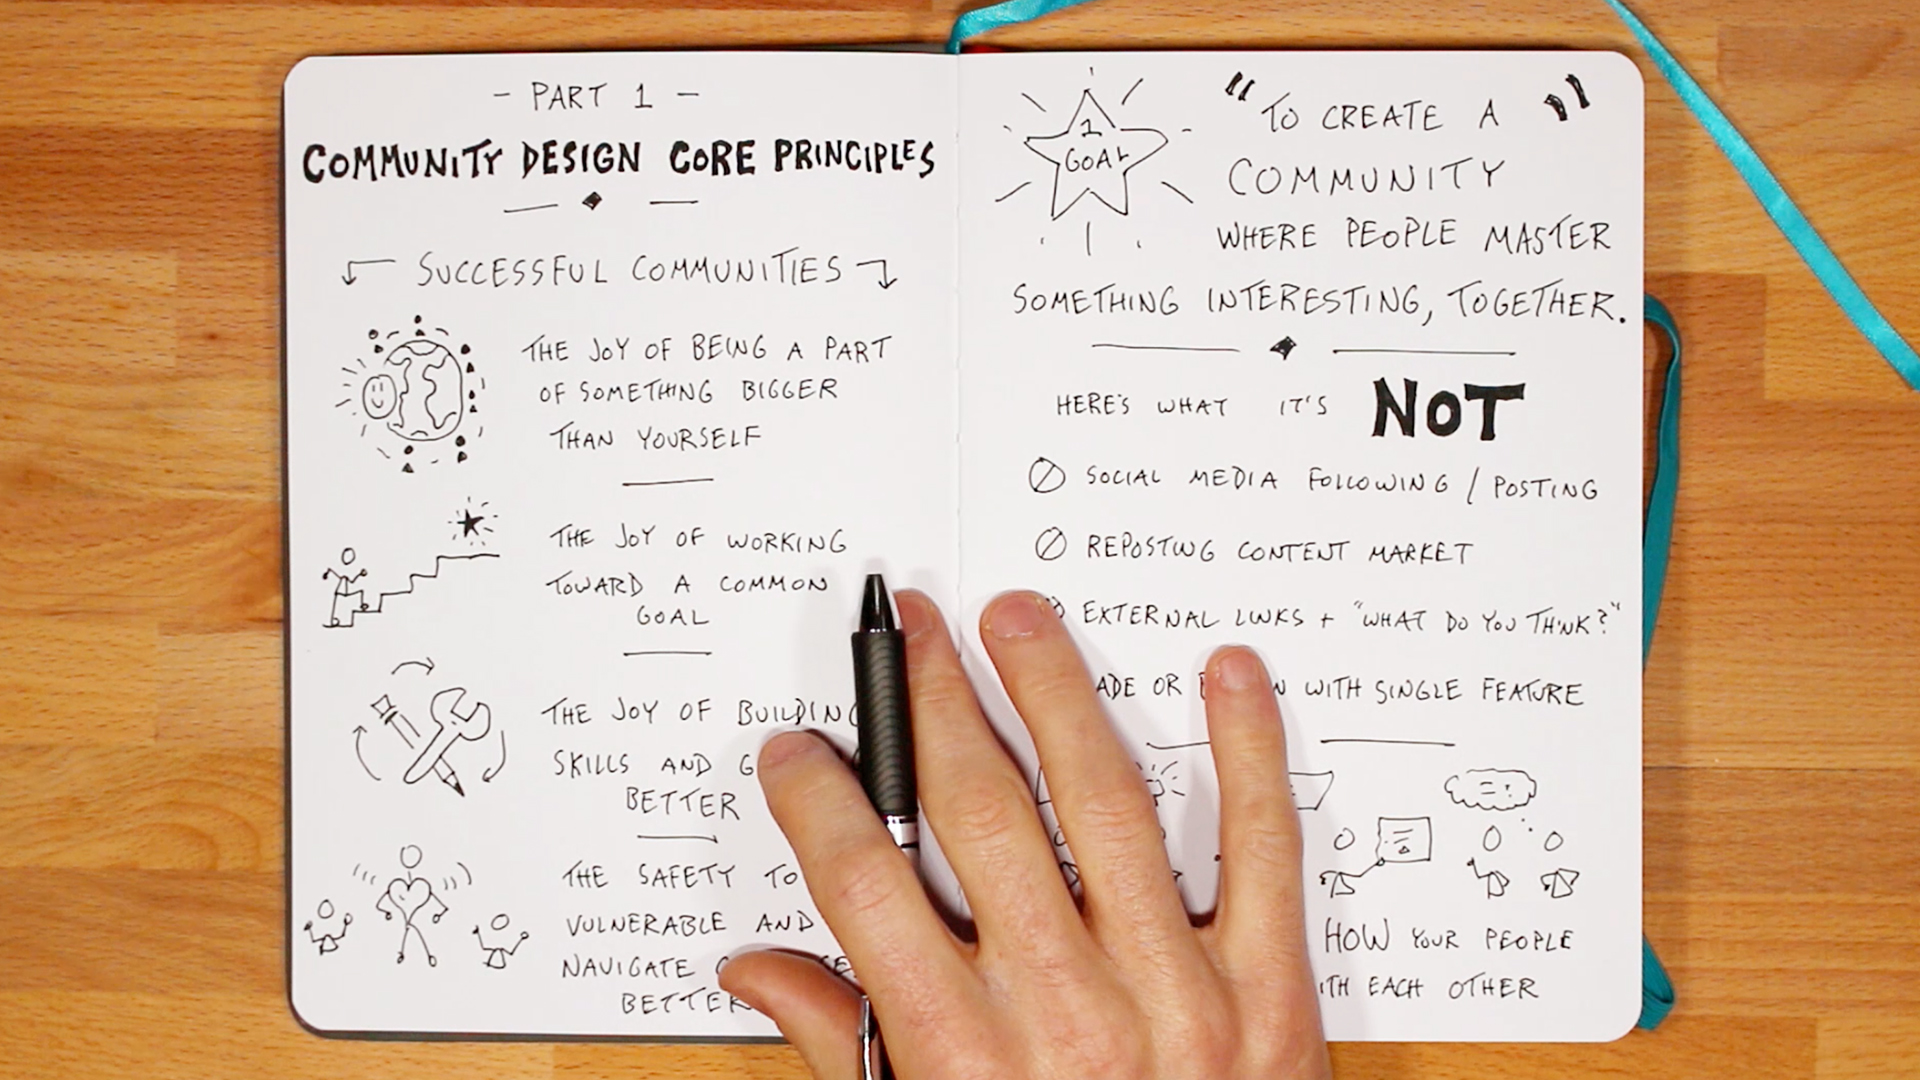 - PART 1 -
COMMUNITY DESIGN CORE PRINCIPLES
SUCCESSFUL COMMUNITIES
THE JOY OF BEING A PART
OF SOMETHING BIGGER
THAN YOURSELF
THE JOY OF WORKING
TOWARD A COMMON
GOAL
THE JOY OF BUILDING
SKILLS AND
BETTER
THE SAFETY TO
VULNERABLE AND
NAVIGATE
BETTER
1
GOAL
"TO CREATE A "
COMMUNITY
WHERE PEOPLE MASTER
SOMETHING INTERESTING, TOGETHER.
HERE'S WHAT IT'S NOT
SOCIAL MEDIA FOLLOWING / POSTING
REPOSTING CONTENT MARKET
EXTERNAL LINKS + "WHAT DO YOU THINK?"
OR WITH SINGLE FEATURE
HOW YOUR PEOPLE
EACH OTHER